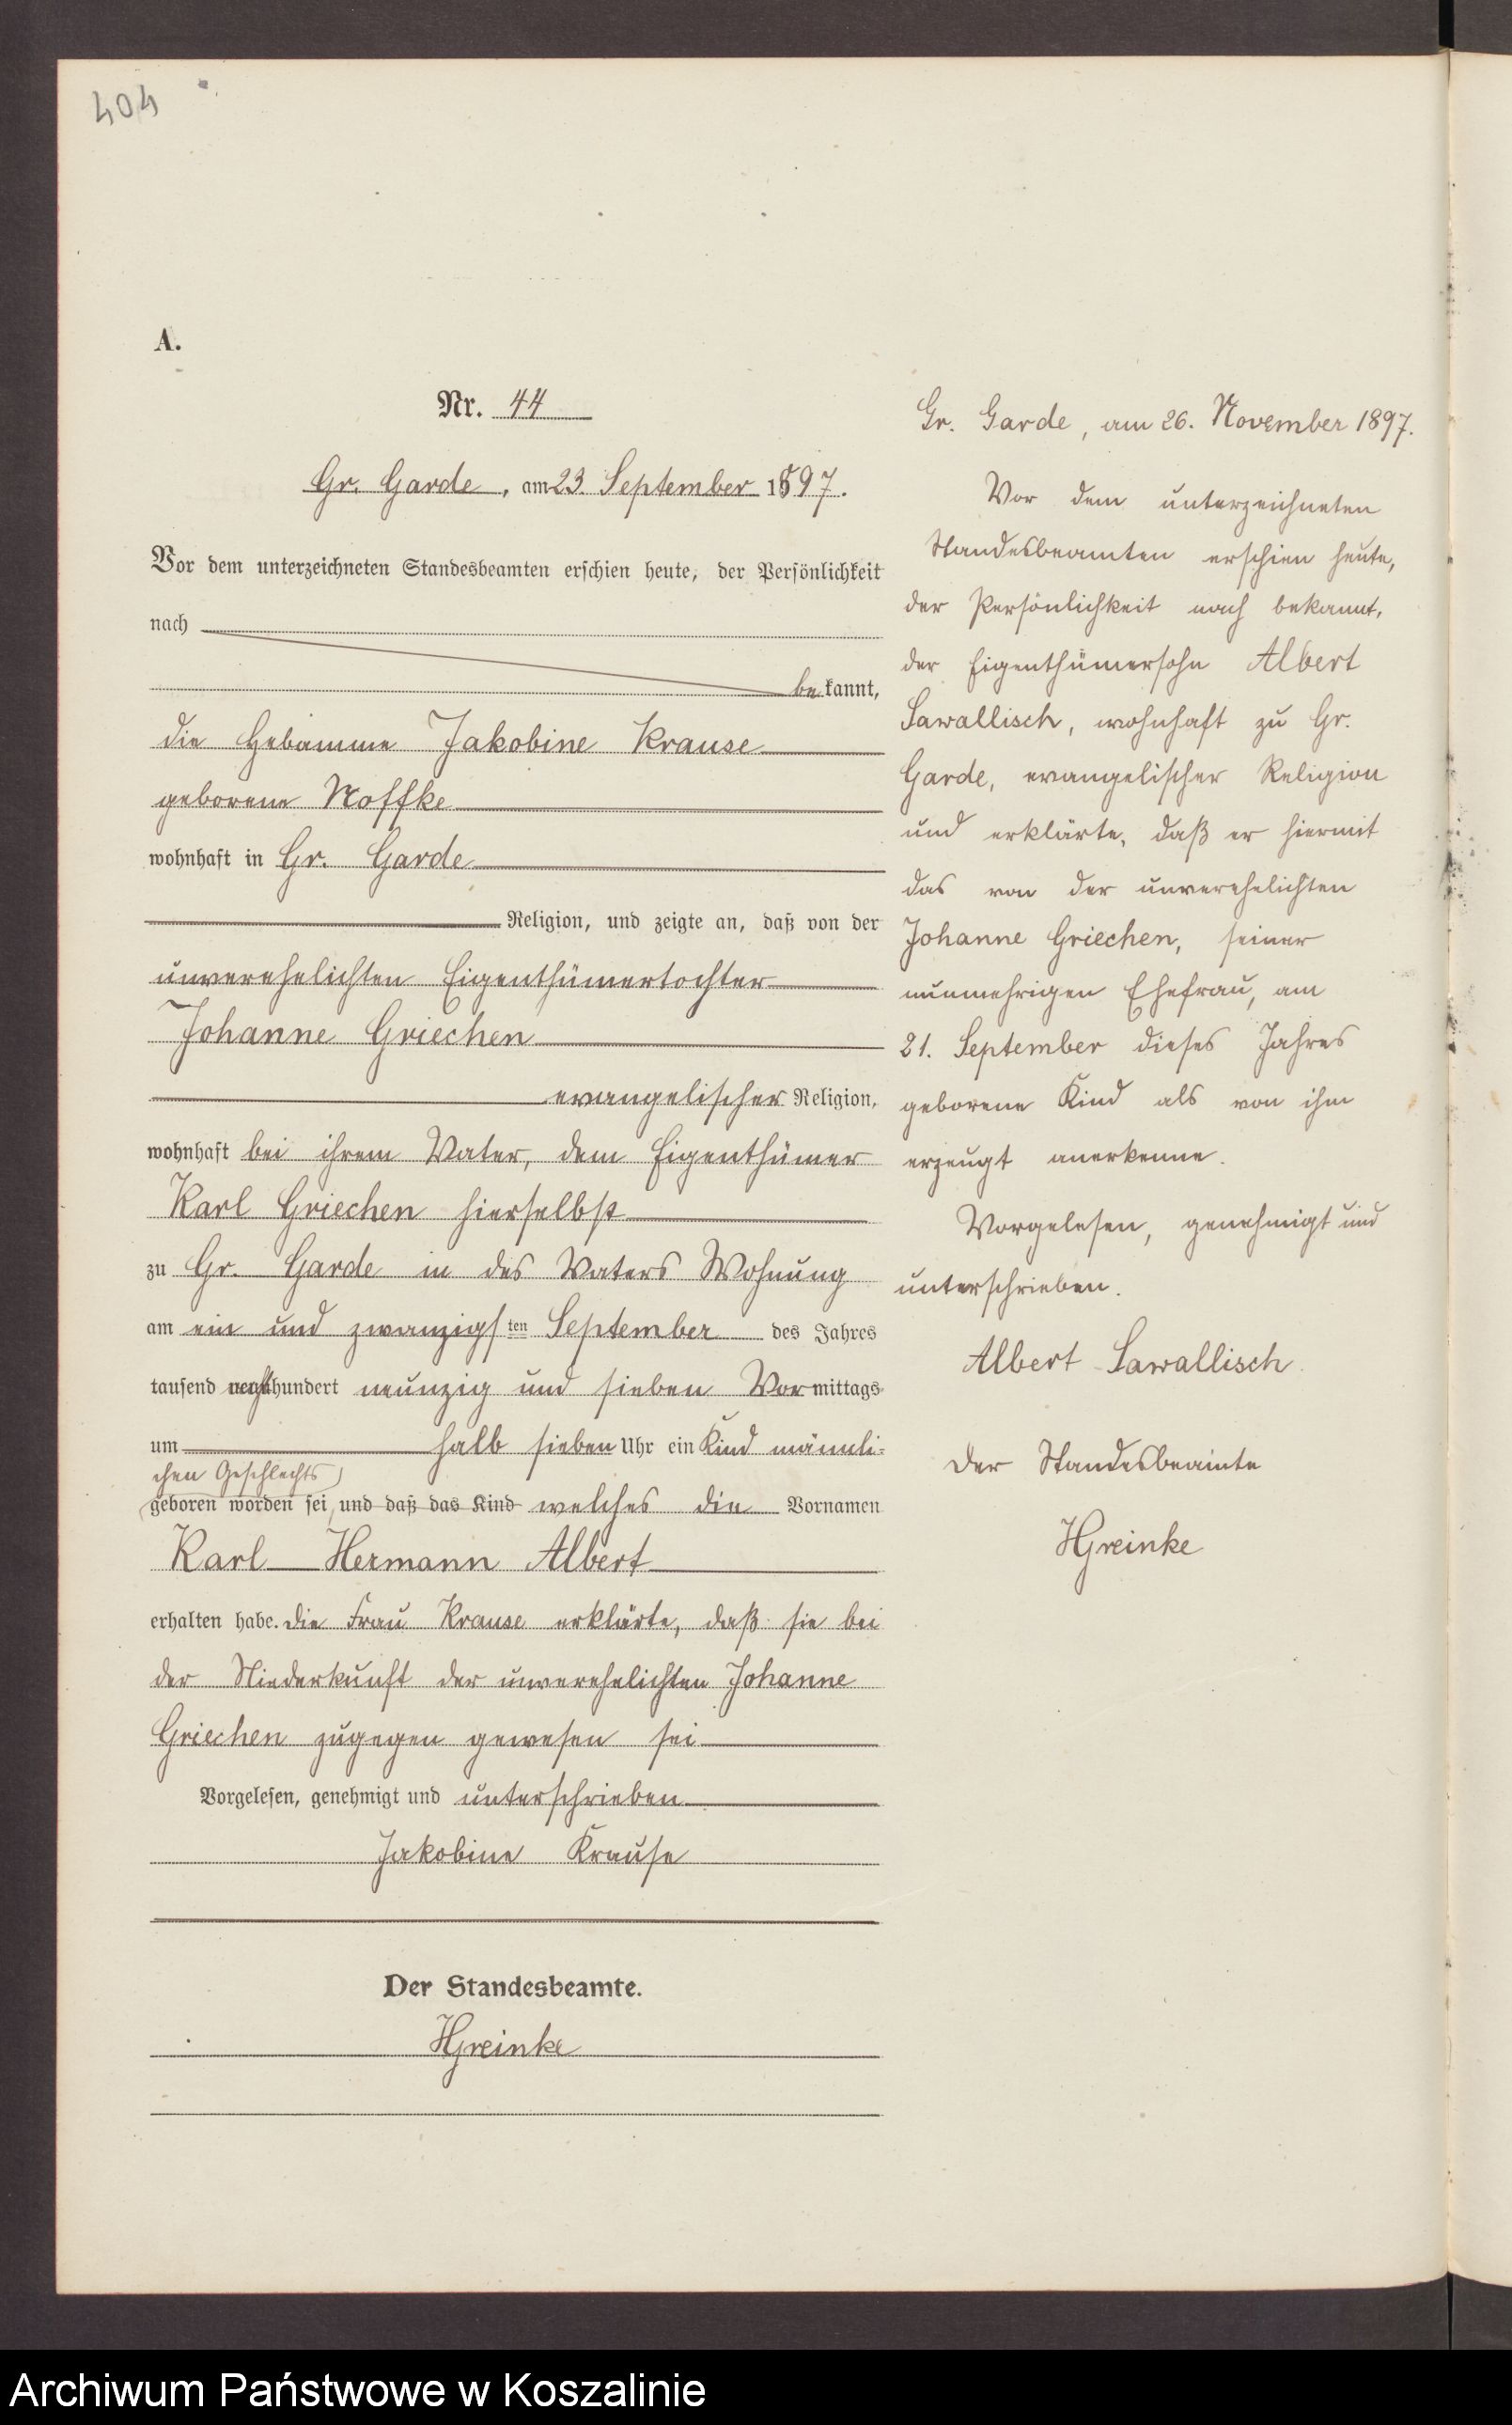 404
A.
Nr. 44
Gr. Garde, am 23. September 1897.
Vor dem unterzeichneten Standesbeamten erschien heute, der Persönlichkeit
nach
bekannt,
die Hebamme Jakobine Krause
geborene Noffke
wohnhaft in Gr. Garde
Religion, und zeigte an, daß von der
unverehelichten Eigenthümertochter
Johanne Griechen
evangelischer Religion,
wohnhaft bei ihrem Vater, dem Eigenthümer
Karl Griechen hierselbst
zu Gr. Garde in des Vaters Wohnung
am ein und zwanzigsten September des Jahres
tausend achthundert neunzig und sieben Vormittags
um halb sieben Uhr ein Kind männli=
chen Geschlechts
geboren worden sei, und daß das Kind welches die Vornamen
Karl Hermann Albert
erhalten habe. Die Frau Krause erklärte, daß sie bei
der Niederkunft der unverehelichten Johanne
Griechen zugegen gewesen sei
Vorgelesen, genehmigt und unterschrieben
Jakobine Krause
Der Standesbeamte.
HGreinke
Gr. Garde, am 26. November 1897.
Vor dem unterzeichneten
Standesbeamten erschien heute,
der Persönlichkeit nach bekannt,
der Eigenthümersohn Albert
Sawallisch, wohnhaft zu Gr.
Garde, evangelischer Religion
und erklärte, daß er hiermit
das von der unverehelichten
Johanne Griechen, seiner
nunmehrigen Ehefrau, am
21. September dieses Jahres
geborene Kind als von ihm
erzeugt anerkenne.
Vorgelesen, genehmigt und
unterschrieben.
Albert Sawallisch
Der Standesbeamte
HGreinke
Archiwum Państwowe w Koszalinie